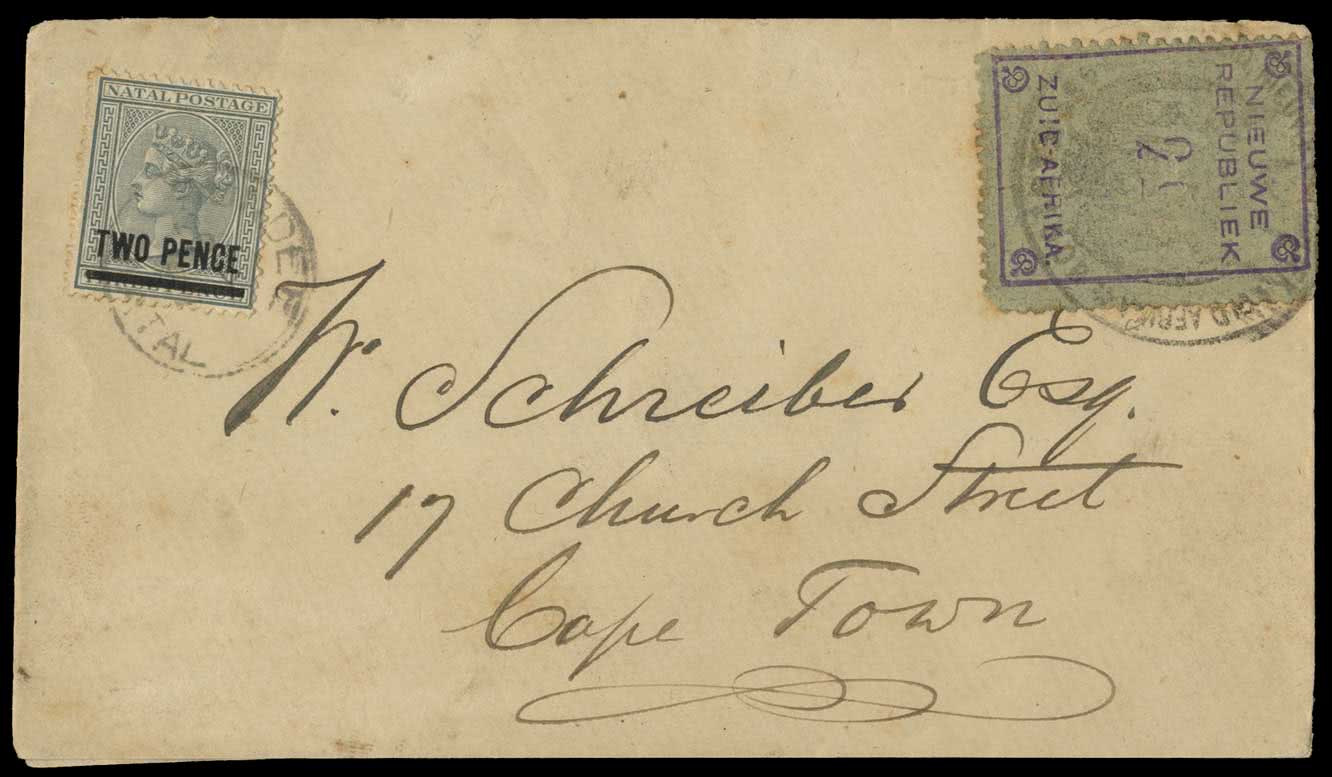 NATAL POSTAGE
TWO PENCE
NATAL
NIEUWE
REPUBLIEK
ZUID-AFRIKA.
W. Schreiber Esq.
17 Church Street
Cape Town